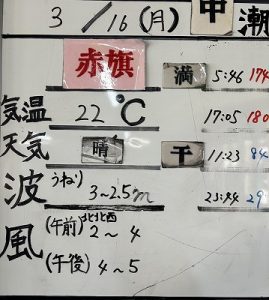 3/16(月) 中潮
赤旗 満 5:46 174
気温 22℃ 17:05 180
天気 晴 干 11:23 84
波 うねり 3~2.5m 23:44 29
風 (午前) 北北西 2~4
(午後) 4~5